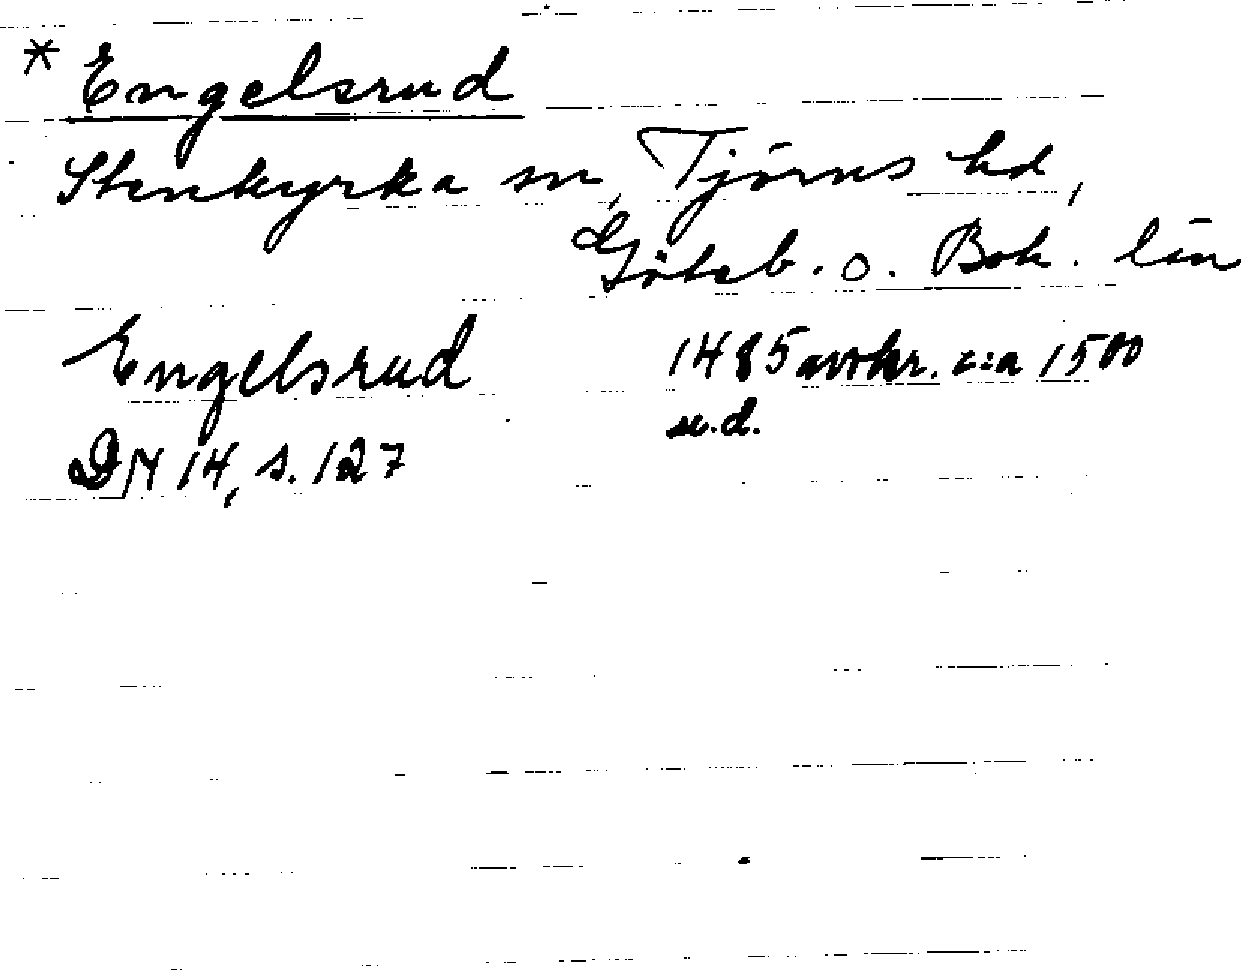 * Engelsrud
Stenkyrka sn, Tjörns hd,
Göteb. o. Boh. län
Engelsrud 1485 avskr. c:a 1500
u.d.
DN 14, s. 127